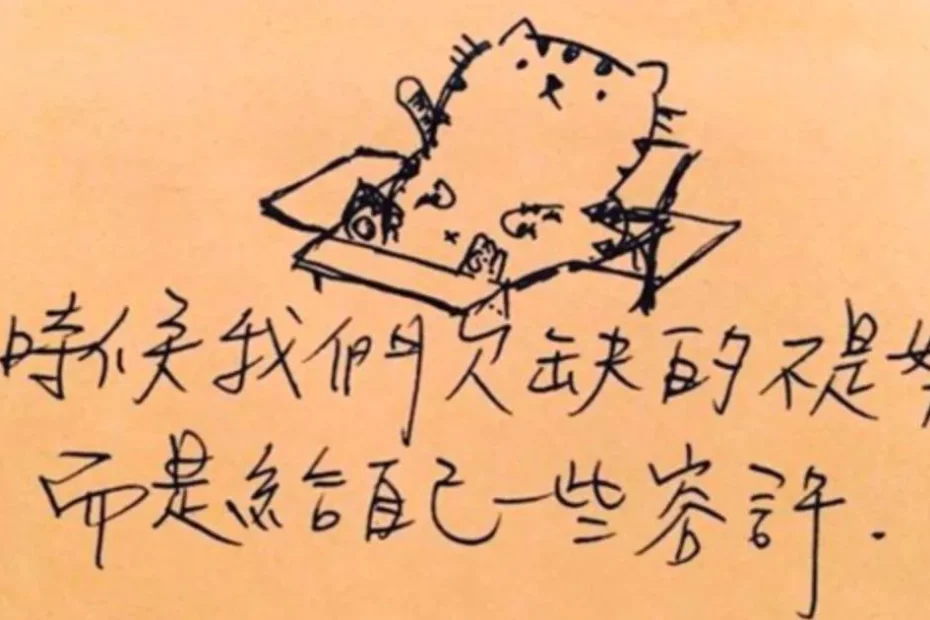 時候我們欠缺的不是
而是給自己一些容許.